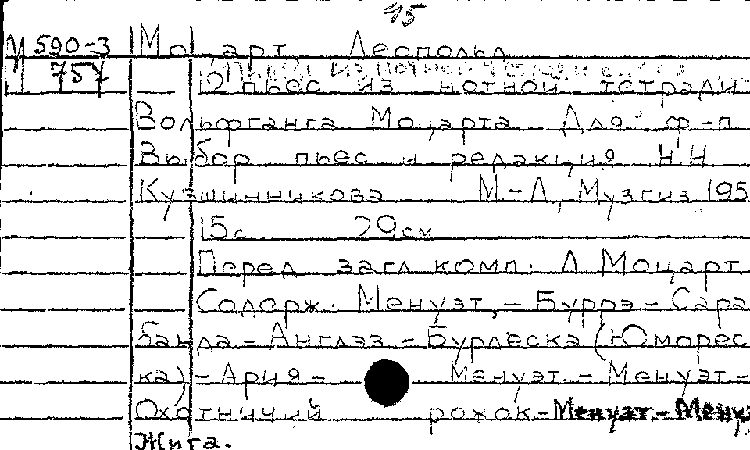 15
М 590-3 Моцарт, Леопольд
757
12 пьес из нотной тетради
Вольфганга Моцарта. Для ф-п.
Выбор пьес и редакция Н.Н.
Кувшинникова М-Л, Музгиз, 195
15с. 29см
Перед загл. комп.: Л. Моцарт
Содерж.: Менуэт.-Буррэ-Сара
банда-Англэз-Бурлеска (Юморес
ка)-Ария- Менуэт.-Менуэт.-
Охотничий рожок-Менуэт.-Менуэ
Жига.